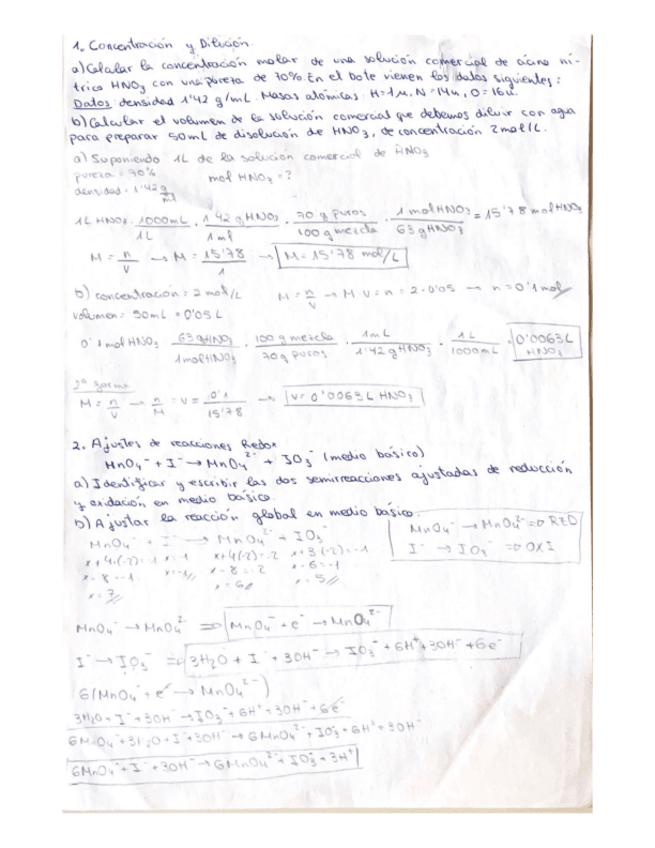 1. Concentración y Dilución.
a) Calcular la concentración molar de una solución comercial de ácino ní-
trico HNO₃ con una pureza de 70%. En el bote vienen los datos siguientes:
Datos: densidad 1'42 g/mL. Masas atómicas: H=1u, N=14u, O=16u.
b) Calcular el volumen de la solución comercial que debemos diluir con agua
para preparar 50mL de disolución de HNO₃, de concentración 2mol/L.
a) Suponiendo 1L de la solución comercial de HNO₃
pureza = 70% mol HNO₃ = ?
densidad = 1'42 g/ml
1L HNO₃ · 1000mL/1L · 1'42 g HNO₃/1 ml · 70 g puros/100 g mezcla · 1 mol HNO₃/63 g HNO₃ = 15'78 mol HNO₃
M = n/V → M = 15'78/1 → M = 15'78 mol/L
b) concentración = 2 mol/L M = n/V → M·V = n = 2·0'05 → n = 0'1 mol
volumen = 50mL = 0'05L
0'1 mol HNO₃ 63 g HNO₃/1 mol HNO₃ · 100 g mezcla/70 g puros · 1mL/1'42 g HNO₃ · 1L/1000mL 0'0063L HNO₃
2ª forma
M = n/V → n/M = V = 0'1/15'78 → V = 0'0063 L HNO₃
2. Ajustes de reacciones Redox
MnO₄⁻ + I⁻ → MnO₄²⁻ + IO₃⁻ (medio básico)
a) Identificar y escribir las dos semirreacciones ajustadas de reducción
y oxidación en medio básico.
b) Ajustar la reacción global en medio básico.
MnO₄⁻ → MnO₄²⁻ ⇒ RED
I⁻ → IO₃⁻ ⇒ OXI
MnO₄⁻ + I⁻ → MnO₄²⁻ + IO₃⁻
x+4·(-2)=-1 x=-1 x+4(-2)=-2 x+3(-2)=-1
x-8=-1 x-8=-2 x-6=-1
x=7 x=6 x=5
MnO₄⁻ → MnO₄²⁻ ⇒ MnO₄⁻ + e⁻ → MnO₄²⁻
I⁻ → IO₃⁻ ⇒ 3H₂O + I⁻ + 3OH⁻ → IO₃⁻ + 6H⁺ + 3OH⁻ + 6e⁻
6(MnO₄⁻ + e⁻ → MnO₄²⁻)
3H₂O + I⁻ + 3OH⁻ → IO₃⁻ + 6H⁺ + 3OH⁻ + 6e⁻
6MnO₄⁻ + 3H₂O + I⁻ + 3OH⁻ → 6MnO₄²⁻ + IO₃⁻ + 6H⁺ + 3OH⁻
6MnO₄⁻ + I⁻ + 3OH⁻ → 6MnO₄²⁻ + IO₃⁻ + 3H⁺